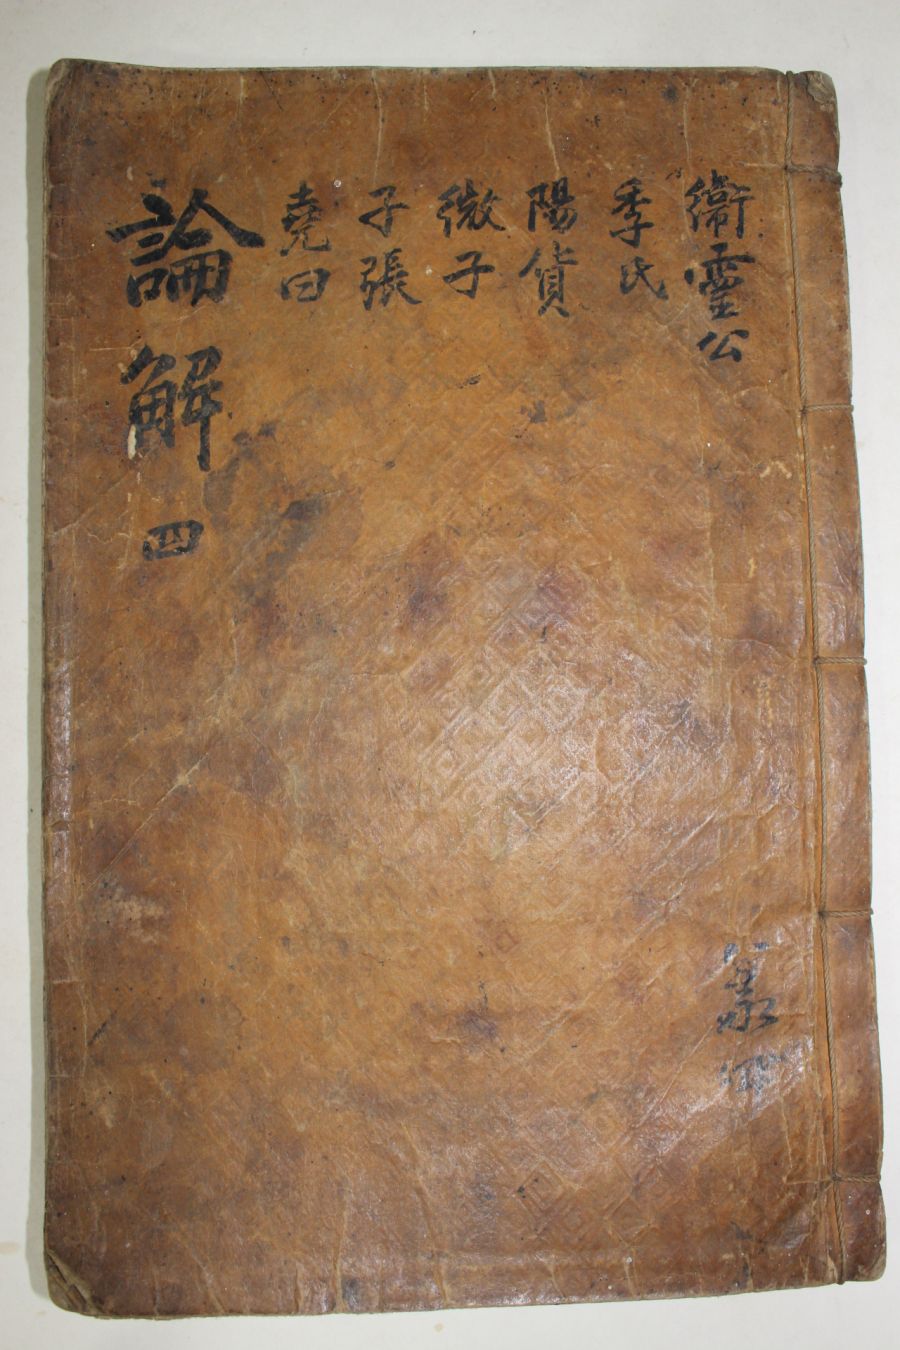 衛靈公
季氏
陽貨
微子
子張
堯曰
論解 四